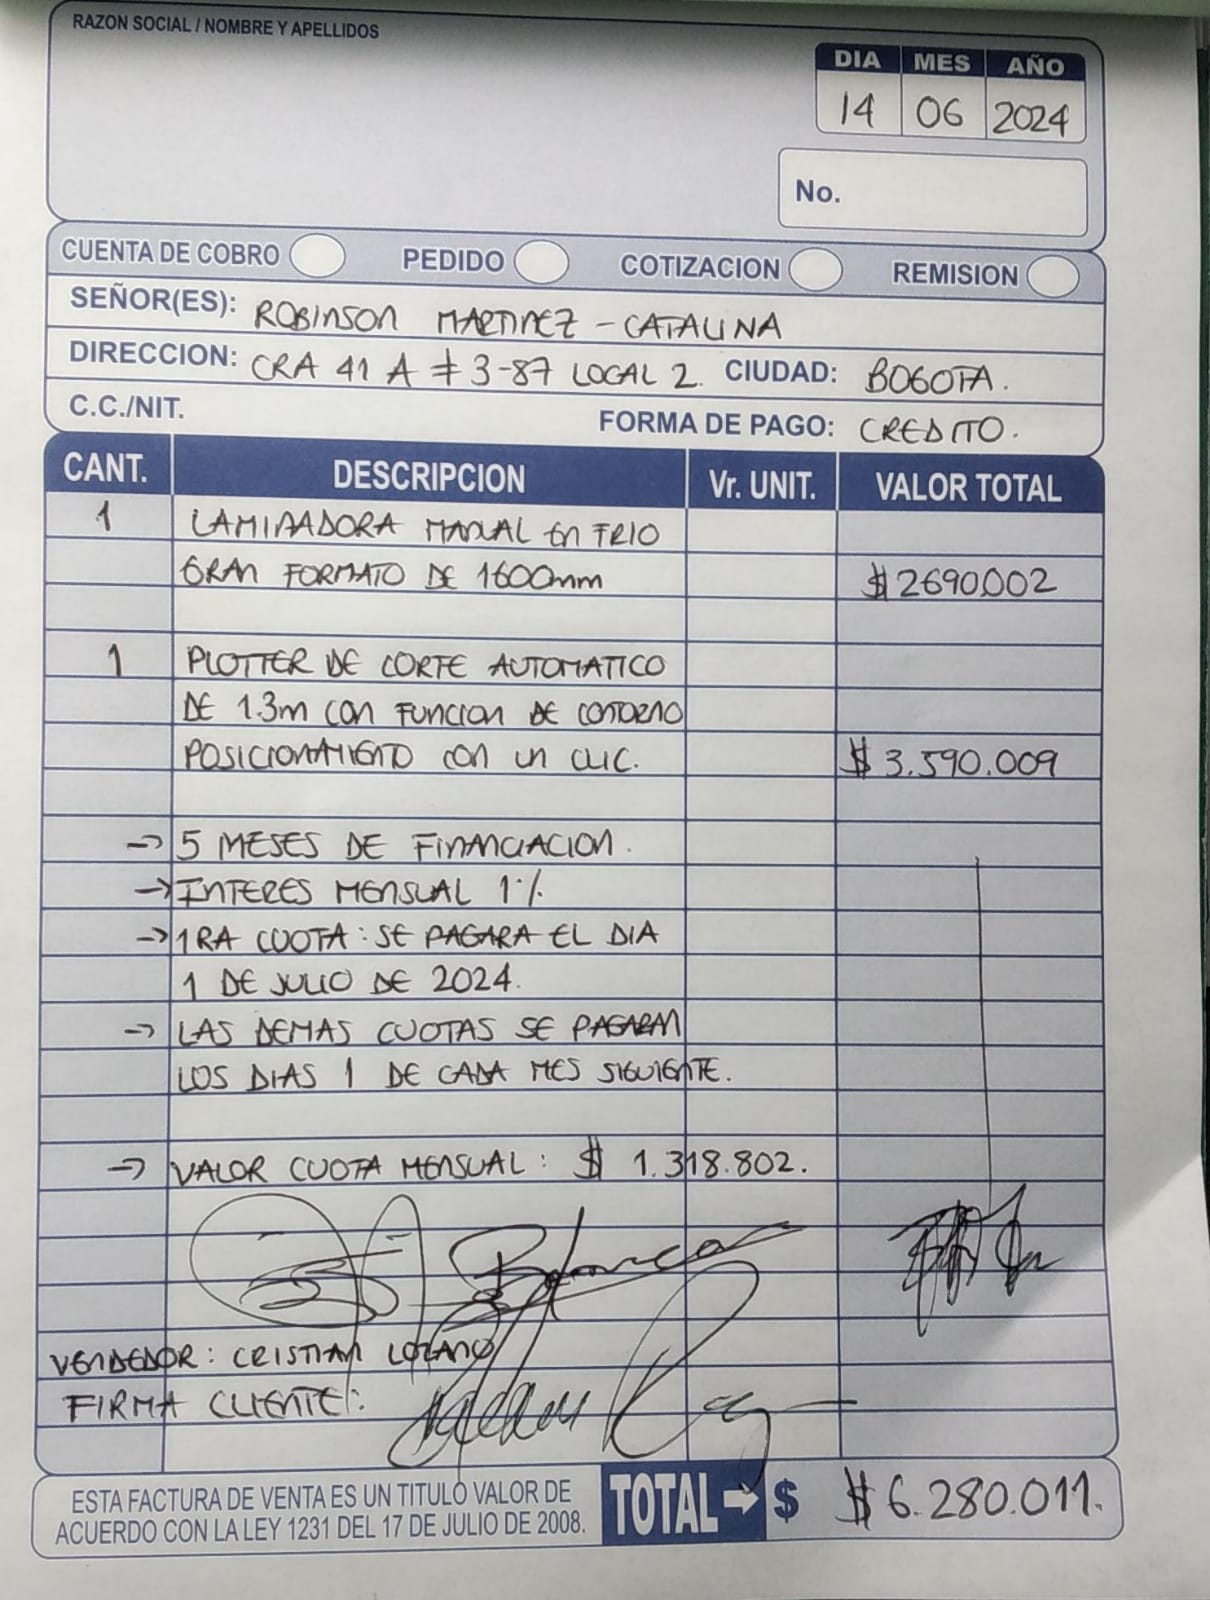 RAZON SOCIAL / NOMBRE Y APELLIDOS
DIA MES AÑO
14 06 2024
No.
CUENTA DE COBRO PEDIDO COTIZACION REMISION
SEÑOR(ES): ROBINSON MARTINEZ - CATALINA
DIRECCION: CRA 41 A # 3-87 LOCAL 2. CIUDAD: BOGOTA.
C.C./NIT. FORMA DE PAGO: CREDITO.
CANT. DESCRIPCION Vr. UNIT. VALOR TOTAL
1 LAMINADORA MANUAL EN FRIO
GRAN FORMATO DE 1600mm $2690.002
1 PLOTTER DE CORTE AUTOMATICO
DE 1.3m CON FUNCION DE COTORNO
POSICIONAMIENTO CON UN CLIC. $ 3.590.009
→ 5 MESES DE FINANCIACION.
→ INTERES MENSUAL 1%
→ 1RA CUOTA: SE PAGARA EL DIA
1 DE JULIO DE 2024.
→ LAS DEMAS CUOTAS SE PAGARAN
LOS DIAS 1 DE CADA MES SIGUIENTE.
→ VALOR CUOTA MENSUAL: $ 1.318.802.
VENDEDOR: CRISTIAN LOZANO
FIRMA CLIENTE:
ESTA FACTURA DE VENTA ES UN TITULO VALOR DE
ACUERDO CON LA LEY 1231 DEL 17 DE JULIO DE 2008.
TOTAL → $ $6.280.011.